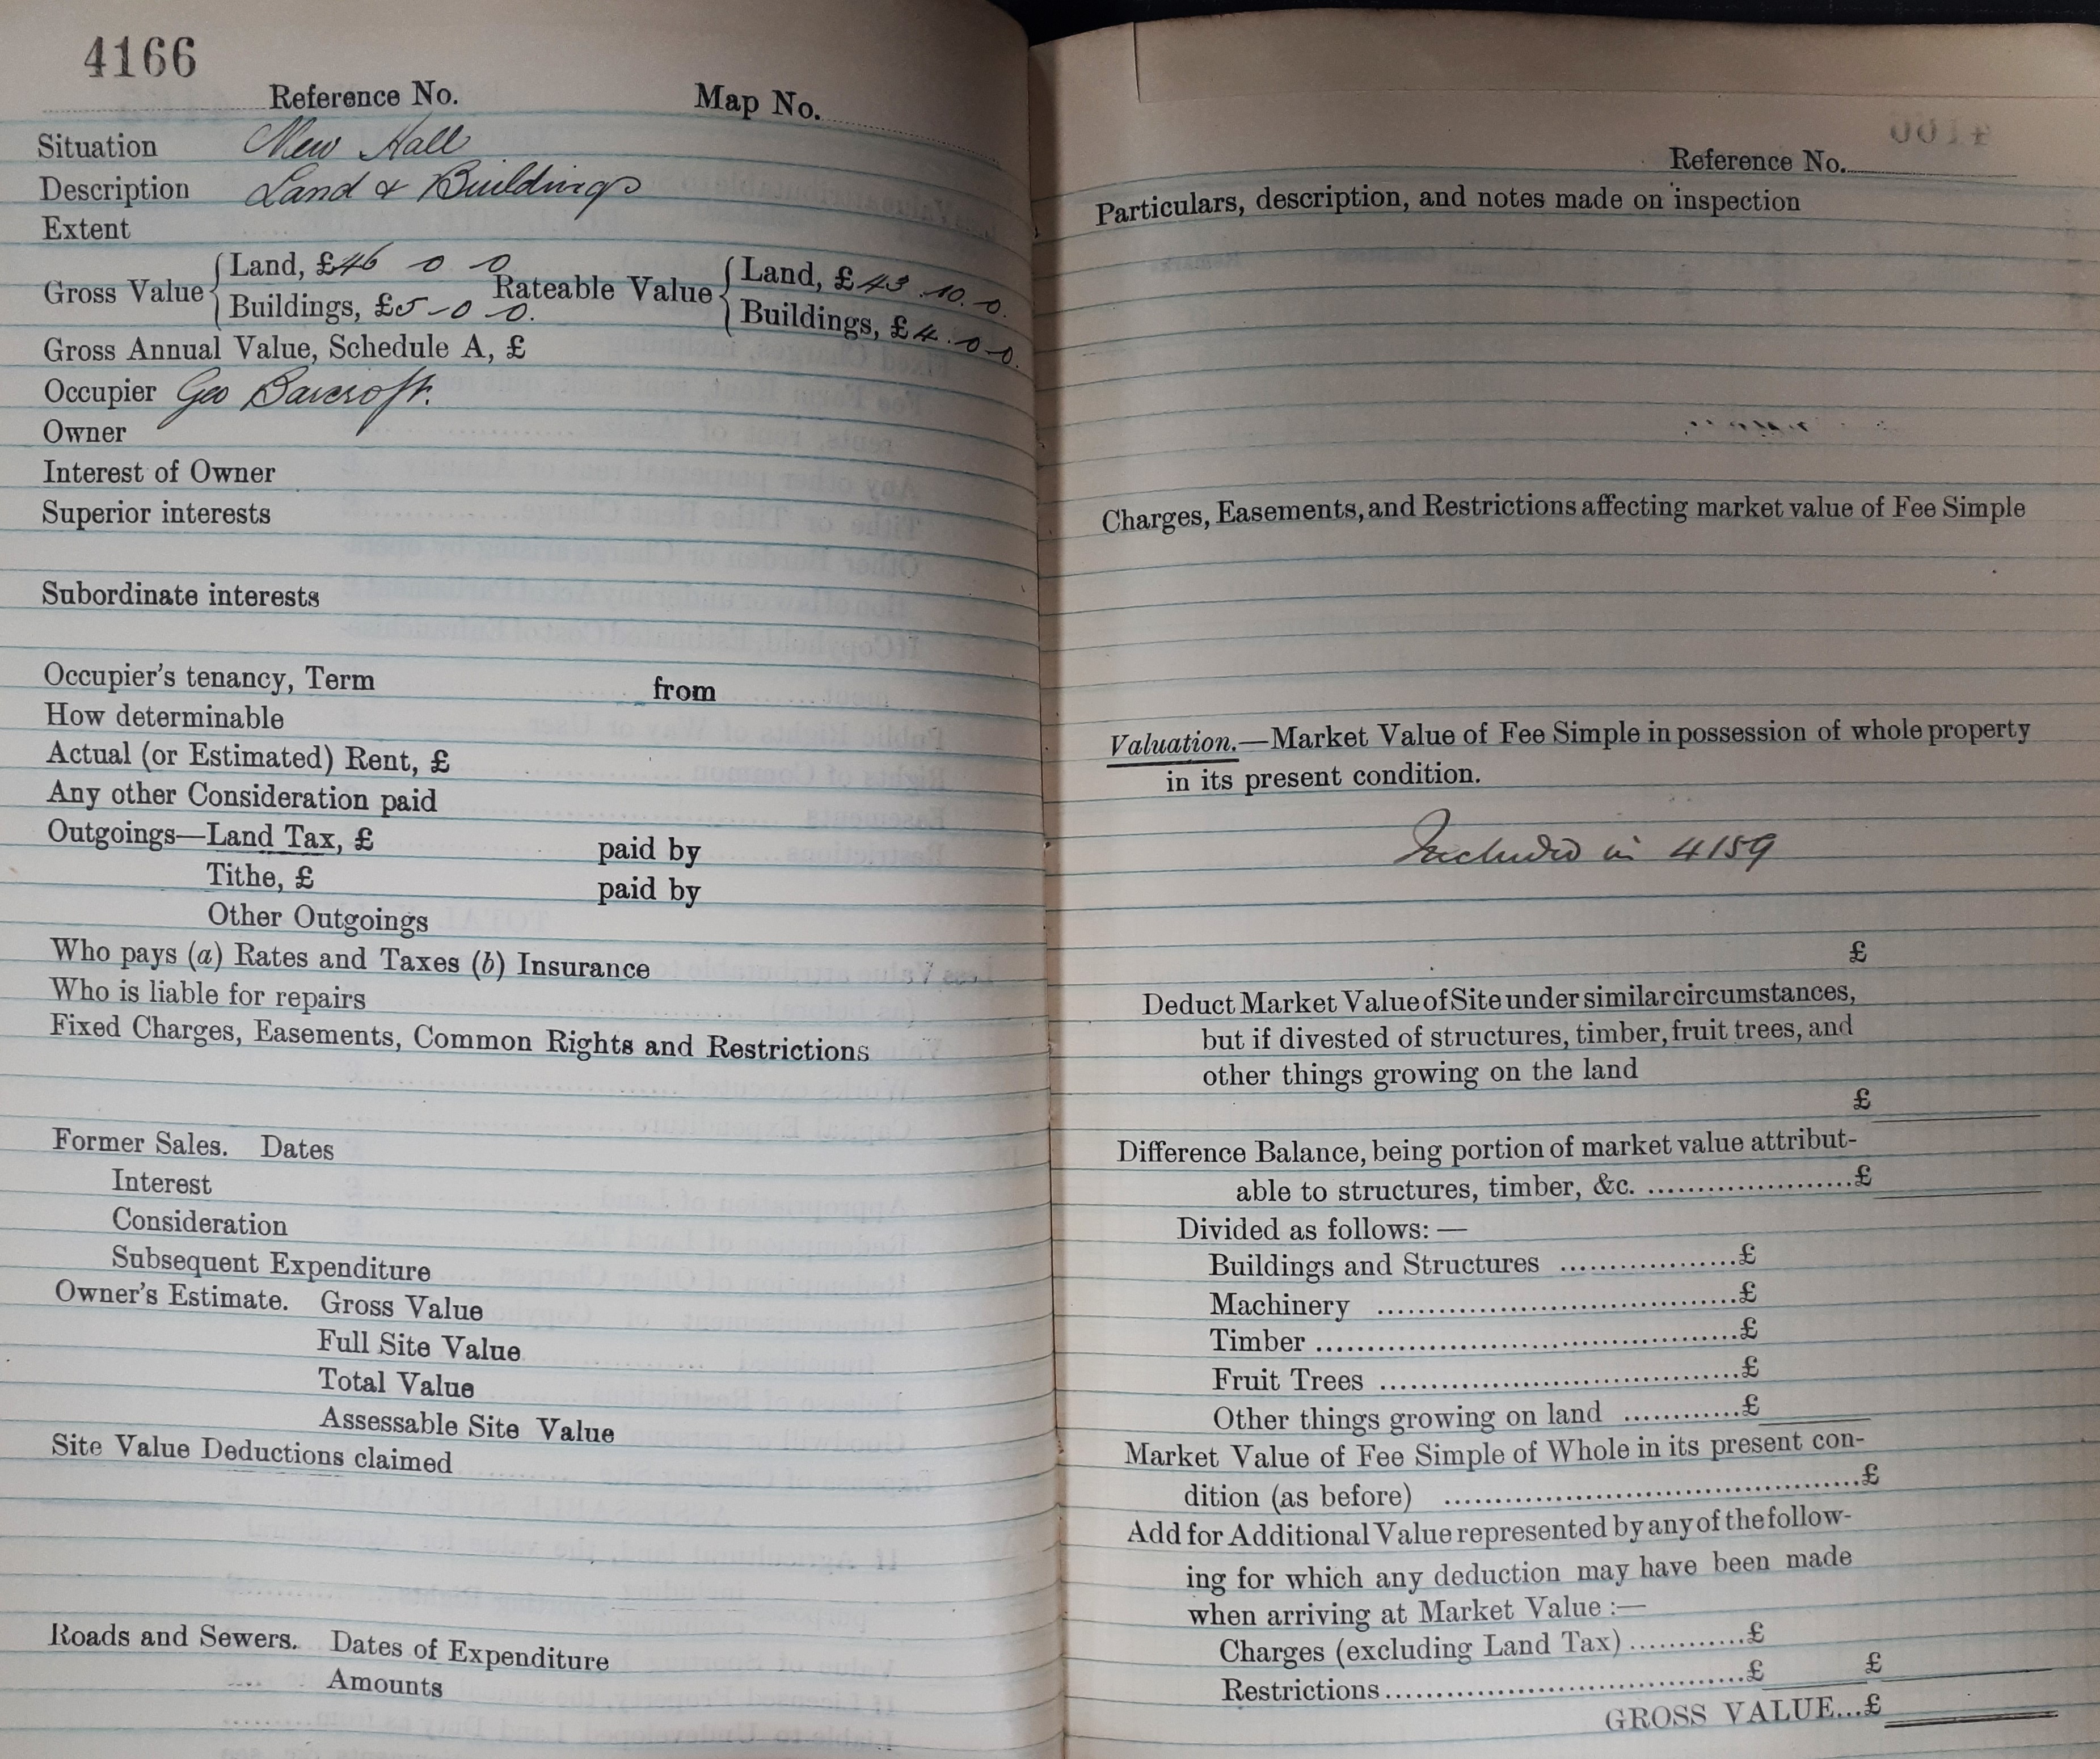 4166
Reference No. Map No.
Situation New Hall
Description Land & Buildings
Extent
Gross Value { Land, £46 0 0 Rateable Value { Land, £43.10.0.
Buildings, £5-0 0. Buildings, £4.0-0.
Gross Annual Value, Schedule A, £
Occupier Geo Barcroft.
Owner
Interest of Owner
Superior interests
Subordinate interests
Occupier's tenancy, Term from
How determinable
Actual (or Estimated) Rent, £
Any other Consideration paid
Outgoings—Land Tax, £ paid by
Tithe, £ paid by
Other Outgoings
Who pays (a) Rates and Taxes (b) Insurance
Who is liable for repairs
Fixed Charges, Easements, Common Rights and Restrictions
Former Sales. Dates
Interest
Consideration
Subsequent Expenditure
Owner's Estimate. Gross Value
Full Site Value
Total Value
Assessable Site Value
Site Value Deductions claimed
Roads and Sewers. Dates of Expenditure
Amounts
Reference No.
Particulars, description, and notes made on inspection
Charges, Easements, and Restrictions affecting market value of Fee Simple
Valuation.—Market Value of Fee Simple in possession of whole property
in its present condition.
Included in 4159
£
Deduct Market Value of Site under similar circumstances,
but if divested of structures, timber, fruit trees, and
other things growing on the land
£
Difference Balance, being portion of market value attribut-
able to structures, timber, &c. ....................£
Divided as follows: —
Buildings and Structures .................£
Machinery ..................................£
Timber .......................................£
Fruit Trees .................................£
Other things growing on land ...........£
Market Value of Fee Simple of Whole in its present con-
dition (as before) .......................................£
Add for Additional Value represented by any of the follow-
ing for which any deduction may have been made
when arriving at Market Value :—
Charges (excluding Land Tax) ...........£
Restrictions ..................................£ £
GROSS VALUE...£